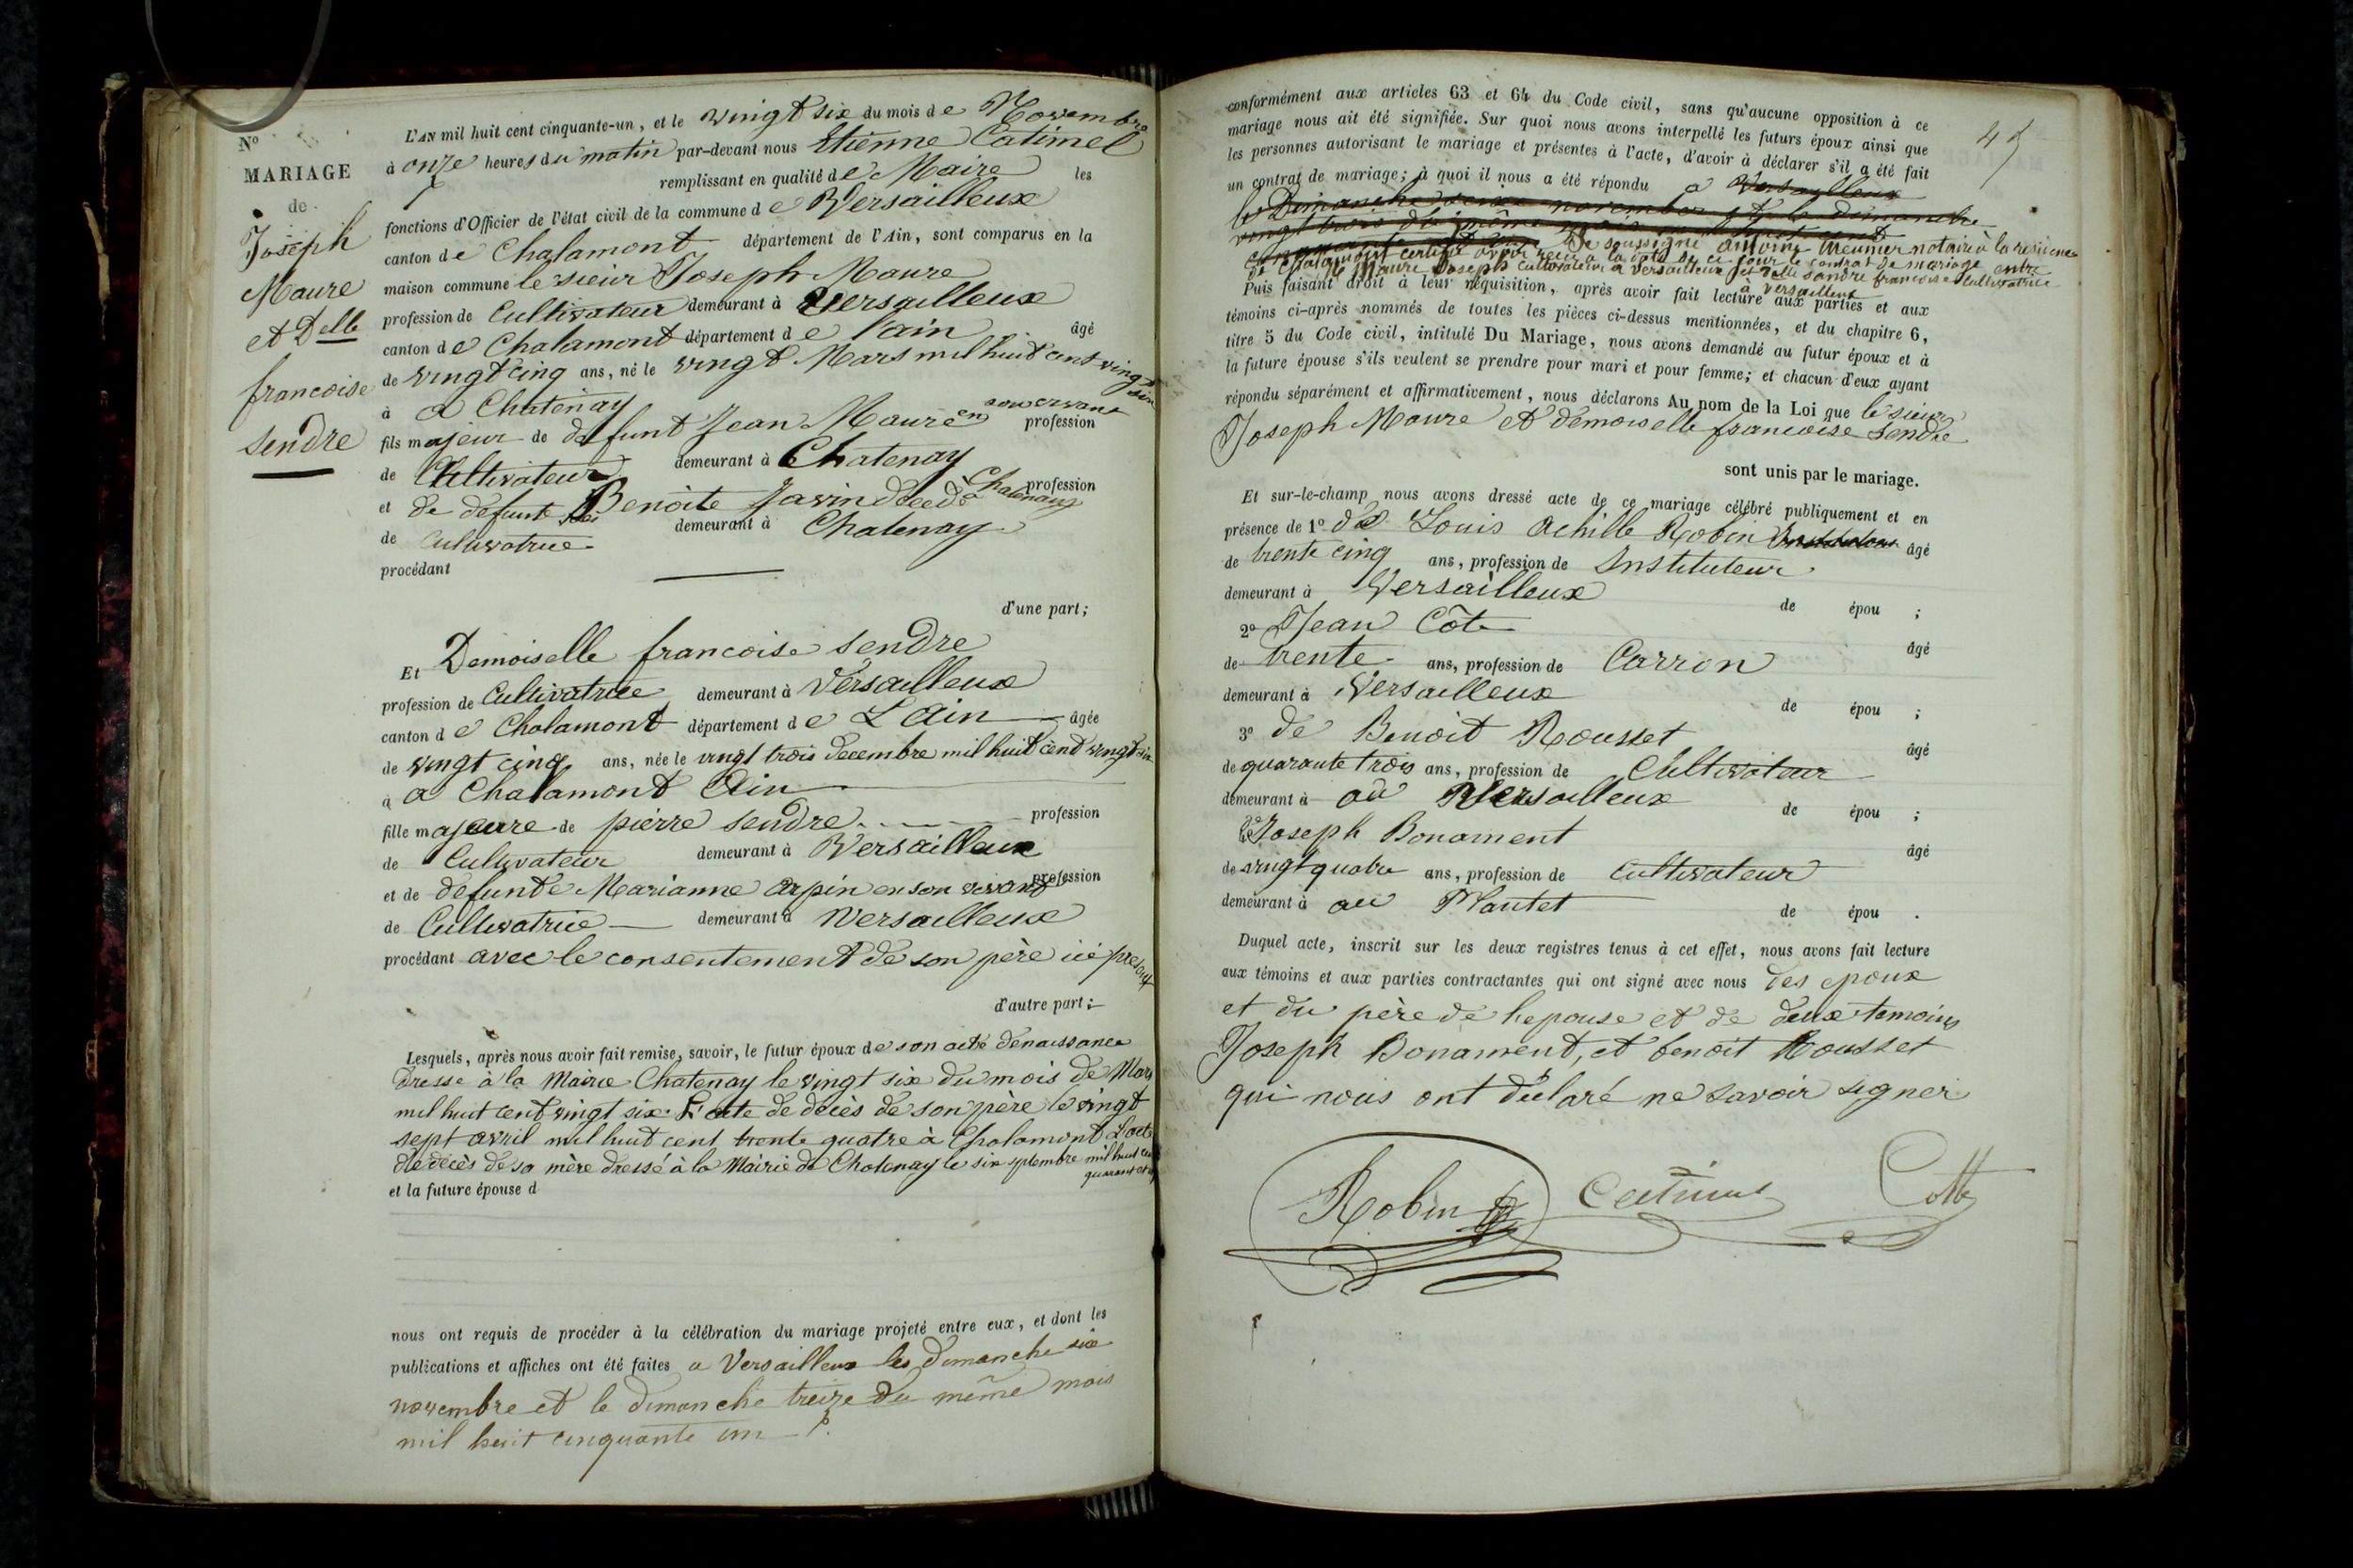 N°
MARIAGE
de
Joseph
Maure
et Delle
francoise
sendre
L'AN mil huit cent cinquante-un, et le vingt six du mois de Novembre
à onze heures du matin par-devant nous Etienne Catimel
remplissant en qualité de Maire les
fonctions d'Officier de l'état civil de la commune de Versailleux
canton de Chalamont département de l'Ain, sont comparus en la
maison commune le sieur Joseph Maure
profession de Cultivateur demeurant à Versailleux
canton de Chalamont département de l'ain âgé
de vingt cinq ans, né le vingt Mars mil huit cent vingt six
à a Chatenay
fils majeur de defunt Jean Maure en son vivant profession
de Cultivateur demeurant à Chatenay
et de defunte Benoite Javin décédé à Chatenay profession
de Cultivatrice demeurant à Chatenay
procédant
d'une part;
Et Demoiselle francoise sendre
profession de Cultivatrice demeurant à Versailleux
canton de Chalamont département de L'Ain âgée
de vingt cinq ans, née le vingt trois decembre mil huit cent vingt six
à a Chalamont Ain
fille majeure de pierre sendre profession
de Cultivateur demeurant à Versailleux
et de defunte Marianne Arpin en son vivant profession
de Cultivatrice demeurant à Versailleux
procédant avec le consentement de son père ici présent
d'autre part;
Lesquels, après nous avoir fait remise, savoir, le futur époux de son acte denaissance
dresse à la Mairie Chatenay le vingt six du mois de Mars
mil huit cent vingt six. L'acte de décès de son père le vingt
sept avril mil huit cent trente quatre à Chalamont L'acte
de décès de sa mère dressé à la Mairie de Chatenay le six septembre mil huit cent
quarante
et la future épouse d
nous ont requis de procéder à la célébration du mariage projeté entre eux, et dont les
publications et affiches ont été faites a Versailleux les dimanche six
novembre et le dimanche treize du même mois
mil huit cinquante un
conformément aux articles 63 et 64 du Code civil, sans qu'aucune opposition à ce
mariage nous ait été signifiée. Sur quoi nous avons interpellé les futurs époux ainsi que
les personnes autorisant le mariage et présentes à l'acte, d'avoir à déclarer s'il a été fait
un contrat de mariage; à quoi il nous a été répondu a Versailleux
le Dimanche seize novembre et le dimanche
vingt trois du même mois mil huit cent
Je soussigné antoine Meunier notaire à la residence
de Chalamont certifie avoir reçu à la date de ce jour le contrat de mariage entre
Maure Joseph cultivateur a Versailleux et delle sandre francoise Cultivatrice
à Versailleux
Puis faisant droit à leur réquisition, après avoir fait lecture aux parties et aux
témoins ci-après nommés de toutes les pièces ci-dessus mentionnées, et du chapitre 6,
titre 5 du Code civil, intitulé Du Mariage, nous avons demandé au futur époux et à
la future épouse s'ils veulent se prendre pour mari et pour femme; et chacun d'eux ayant
répondu séparément et affirmativement, nous déclarons Au nom de la Loi que le sieur
Joseph Maure et demoiselle francoise Sendre
sont unis par le mariage.
Et sur-le-champ nous avons dressé acte de ce mariage célébré publiquement et en
présence de 1° de Louis Achille Robin Instituteur âgé
de trente cinq ans, profession de Instituteur
demeurant à Versailleux de épou ;
2° Jean Côte âgé
de trente ans, profession de Carron
demeurant à Versailleux de épou ;
3° de Benoit Rousset âgé
de quarante trois ans, profession de Cultivateur
demeurant à au Versailleux de épou ;
Joseph Bonament âgé
de vingt quatre ans, profession de Cultivateur
demeurant à au Plantet de épou .
Duquel acte, inscrit sur les deux registres tenus à cet effet, nous avons fait lecture
aux témoins et aux parties contractantes qui ont signé avec nous des epoux
et du père de lepouse et de deux temoins
Joseph Bonament, et benoit Rousset
qui nous ont déclaré ne savoir signer
Robin Catimel Cotte